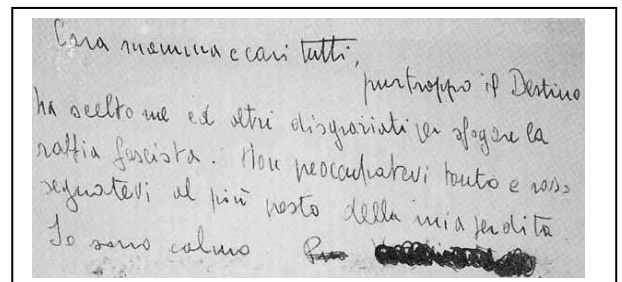 Cara mamma e cari tutti,
purtroppo il Destino
ha scelto me ed altri disgraziati per sfogare la
raffia fascista. Non preoccupatevi tanto e rass
segnatevi al più presto della mia perdita.
Io sono calmo